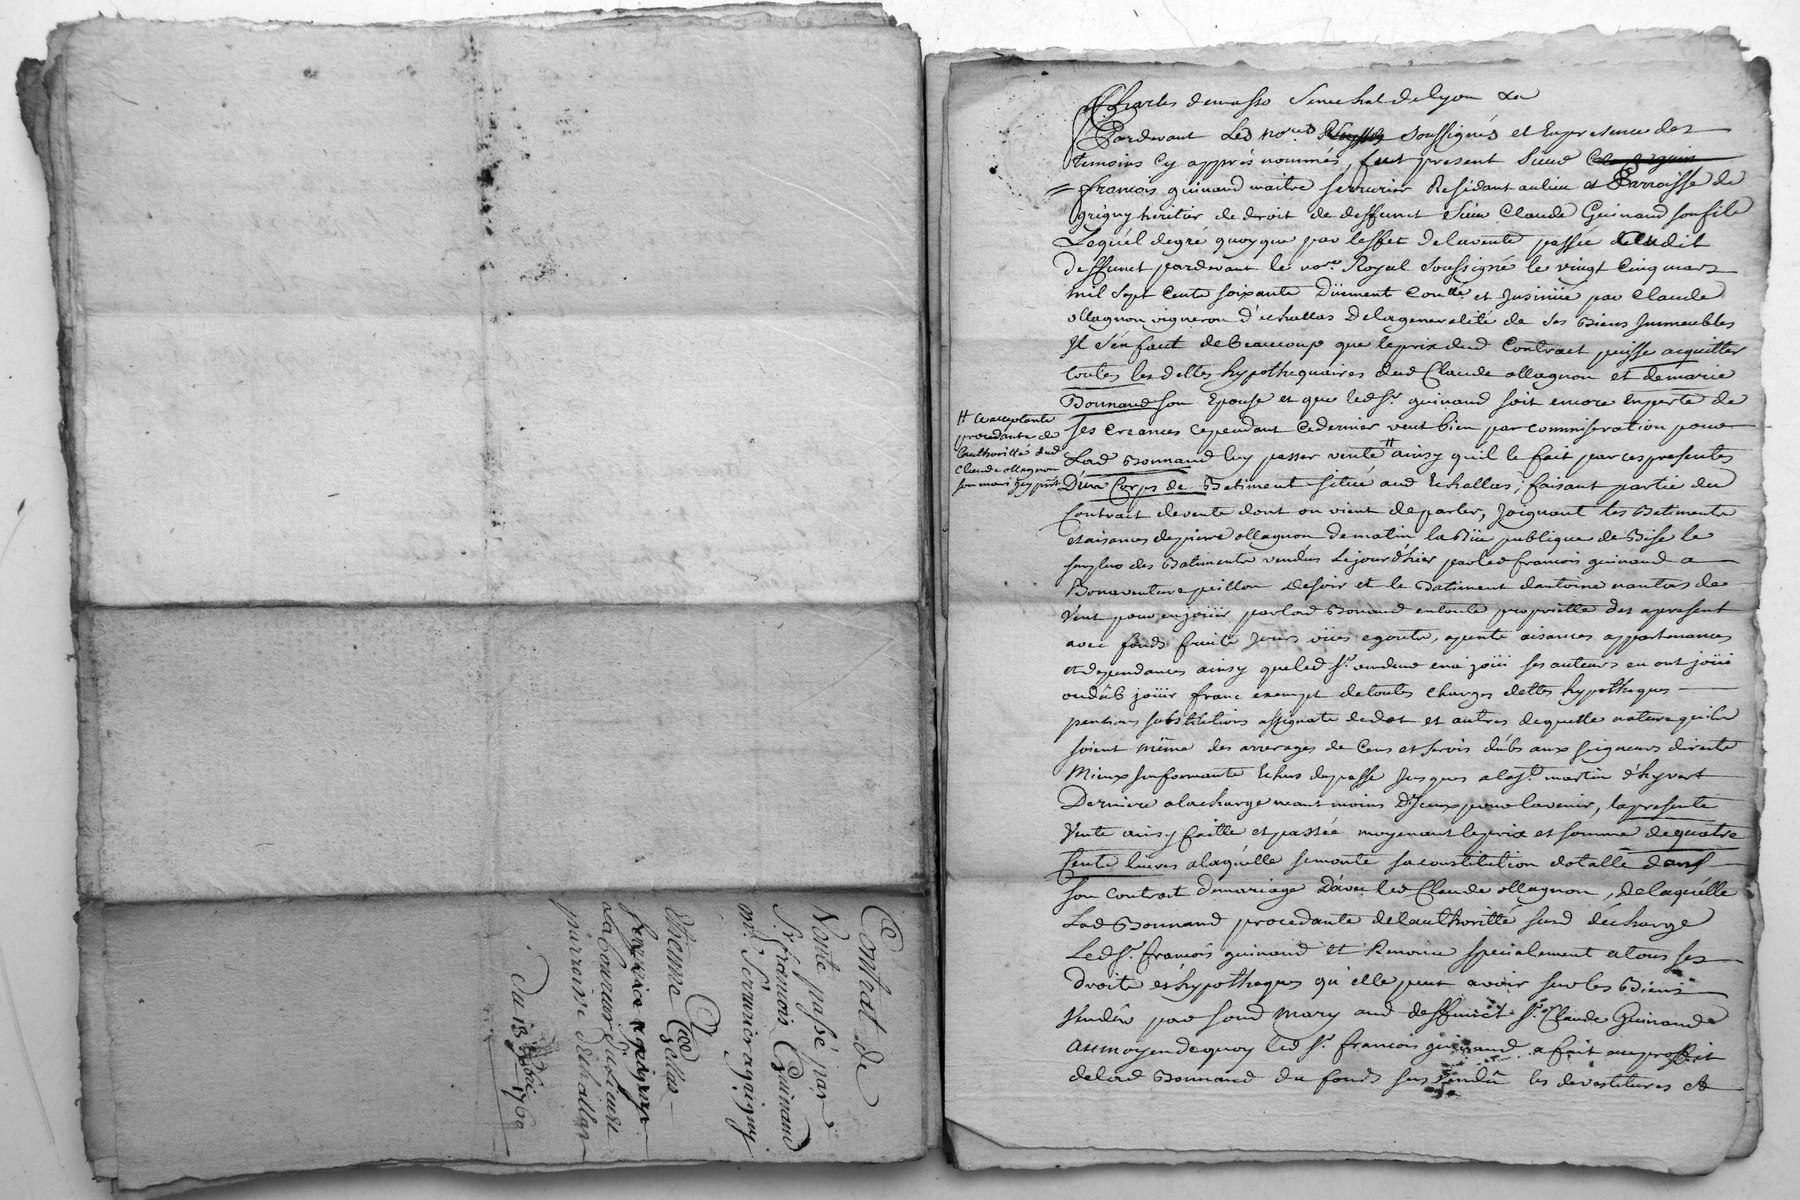 Contrat de
Vente passé par
Sr. francois Guinand
mtre. Serrurier a grigny
Etienne
Laboureur
parroisse dechallas
Du 13 1760
Charles demasso Senechal de lyon &a
Pardevant Les Nores soussignés et En presence des
temoins Cy apprés nommés, fut present Sieur
francois guinand maitre serrurier Residant au lieu et Parroisse de
grigny heritier de droit de deffunct Sieur Claude Guinand son fils
Lequel degré quoyque par leffet de la vente passée audit
deffunct pardevant le nore. Royal soussigné le vingt cinq mars
mil sept cents soixante Düement Conllé. et Insinüé par Claude
ollagnon vigneron d'echallas De la generalité de ses Biens Immeubles
Il s'en faut de beaucoup que le prix dud Contract puisse acquitter
toutes les dettes hypothequaires dud Claude ollagnon et de marie
Bonnand son Epouse et que led Sr. guinand soit encore En perte de
ses creances cependant Ce dernier veut bien par commiseration pour
Lad Bonnand luy passer vente # ainsy qu'il le fait par ces presentes
# Ce acceptante
procedante de
l'authorité dud
Claude ollagnon
son mari Icy pnt
D'un Corps de Batiment situé aud Echallas, faisant partie du
Contrait de vente dont on vient de parler, Joignant les Batiments
et aisances de pierre ollagnon de matin la Rüe publique de Bise le
surplus des Batiments vendus le jourd'hier par led francois guinand a
Bonaventure peillon de soir et le Batiment dantoine nantas de
Vent pour en joüir par lad Bonnand en toute proprietté des apresent
avec fonds fruits Jours vües egouts, apents aisances appartenances
et dependances ainsy que led Sr. vendeur en a joüi ses auteurs en ont joüi
ou dûb joüir franc exempt de toutes charges dettes hypotheques
pentions substitutions assignats de dot et autres de quelle nature qu'ils
soient même des arrerages de Cens et servis dûbs aux seigneurs directs
Mieux Informants Echus du passé Jusques a la St. martin d'hyvert
Derniere a la charge neant moins D'Iceux pour lavenir, la presente
Vente ainsy faitte et passée moyenant le prix et somme de quatre
Cents livres a laquelle se monte sa constitution dotalle dans
son contrat de mariage D'avec led Claude ollagnon, De laquelle
Lad Bonnand procedante de lauthoritté susd décharge
Led Sr. francois guinand et Renonce specialement a tous ses
droits et hypotheques qu'elle peut avoir sur les Biens
Vendûs par sond Mary aud deffunct Sr. Claude Guinand
au moyen de quoy led Sr. francois guinand a fait au proffit
de lad Bonnand du fonds sus vendû les devestitures et